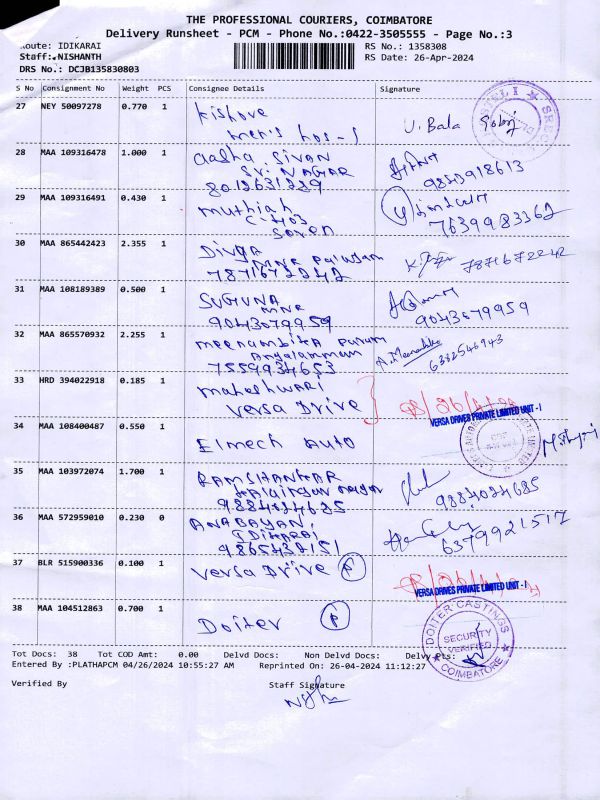 THE PROFESSIONAL COURIERS, COIMBATORE
Delivery Runsheet - PCM - Phone No.:0422-3505555 - Page No.:3
Route: IDIKARAI
RS No.: 1358308
Staff: NISHANTH
RS Date: 26-Apr-2024
DRS No.: DCJB135830803
S No Consignment No Weight PCS Consignee Details Signature
27 NEY 50097278 0.770 1 Kishore
men's hos-
U. Bala
28 MAA 109316478 1.000 1 Aasha Sivan
Sri NAGAR
8012631229
9850918613
29 MAA 109316491 0.430 1 Muthiah
C-403
Soren
7639983362
30 MAA 865442423 2.355 1 Divya
MNR Palayam
7871672242
7871672242
31 MAA 108189389 0.500 1 SUGUNA
MNR
9043079959
9043079959
32 MAA 865570932 2.255 1 meenambika Puram
Angalamman
7559934653
A. Menakka
6382546943
33 HRD 394022918 0.185 1 maheshwari
Versa Drive
26/4/24
VERSA DRIVES PRIVATE LIMITED UNIT - I
34 MAA 108400487 0.550 1 Elmech Auto
35 MAA 103972074 1.700 1 RAMSHANKAR
9884024685
9884024685
36 MAA 572959010 0.230 0 ANABAYAN,
IDIKARAI
9865432151
6379921517
37 BLR 515900336 0.100 1 Versa Drive P
26/4/24
VERSA DRIVES PRIVATE LIMITED UNIT - I
38 MAA 104512863 0.700 1 Doiter P
DOITER CASTINGS
SECURITY
VERIFIED
COIMBATORE
Tot Docs: 38 Tot COD Amt: 0.00 Delvd Docs: Non Delvd Docs: Delvy Pts:
Entered By :PLATHAPCM 04/26/2024 10:55:27 AM Reprinted On: 26-04-2024 11:12:27
Verified By Staff Signature